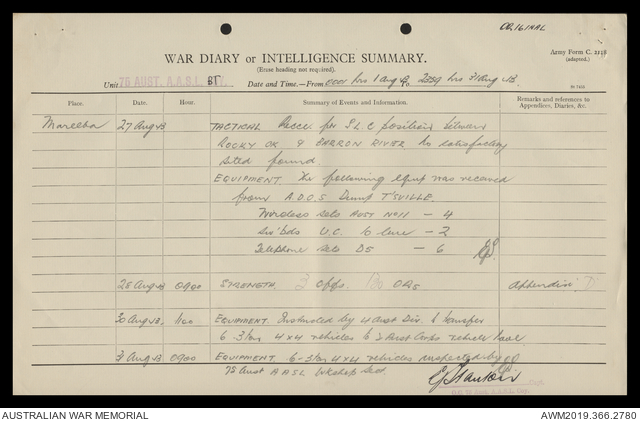 WAR DIARY or INTELLIGENCE SUMMARY.
(Erase heading not required).
Army Form C. 2118
(adapted.)
Unit 75 AUST. A.A.S.L. BTY. Date and Time.—From 0001 hrs 1 Aug to 2359 hrs 31 Aug 43
Place. Date. Hour. Summary of Events and Information. Remarks and references to Appendices, Diaries, &c.
Mareeba 27 Aug 43 TACTICAL Recce for S L C positions between
ROCKY CK & BARRON RIVER no satisfactory
sites found.
EQUIPMENT The following Eqpt was received
from A.D.O.S Dump T'SVILLE.
Wireless sets AUST No 11 — 4
Sw'bds U.C. 10 line — 2
Telephone sets D5 — 6
28 Aug 43 0900 STRENGTH offs. ORs Appendix 'D'
30 Aug 43 1100 EQUIPMENT. Instructed by 4 Aust Div. to transfer
6 - 3 ton 4 x 4 vehicles to 2 Aust Corps vehicle
31 Aug 43 0900 EQUIPMENT. 6 - 3 ton 4 x 4 vehicles inspected by
75 Aust A A S L Wkshop Sec.
AUSTRALIAN WAR MEMORIAL
AWM2019.366.2780